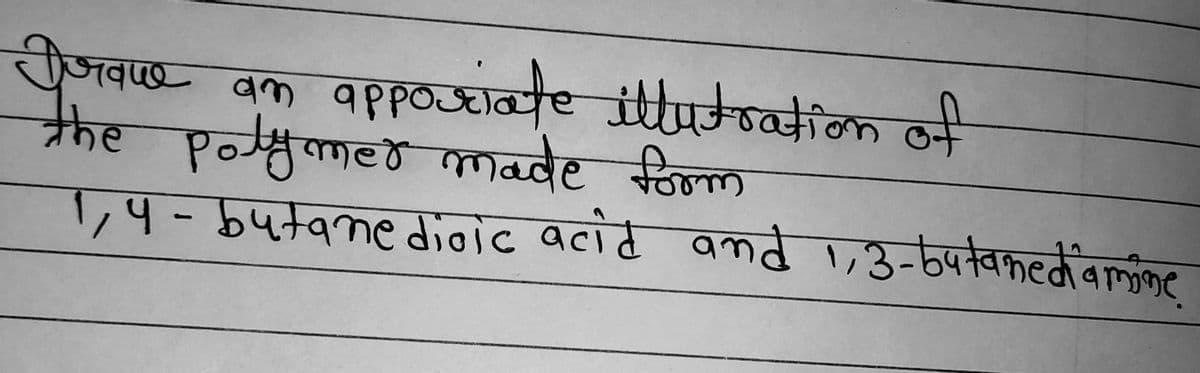 Draque an apporiate illutration of
the polymer made form
1,4-butanedioic acid and 1,3-butanediamine.